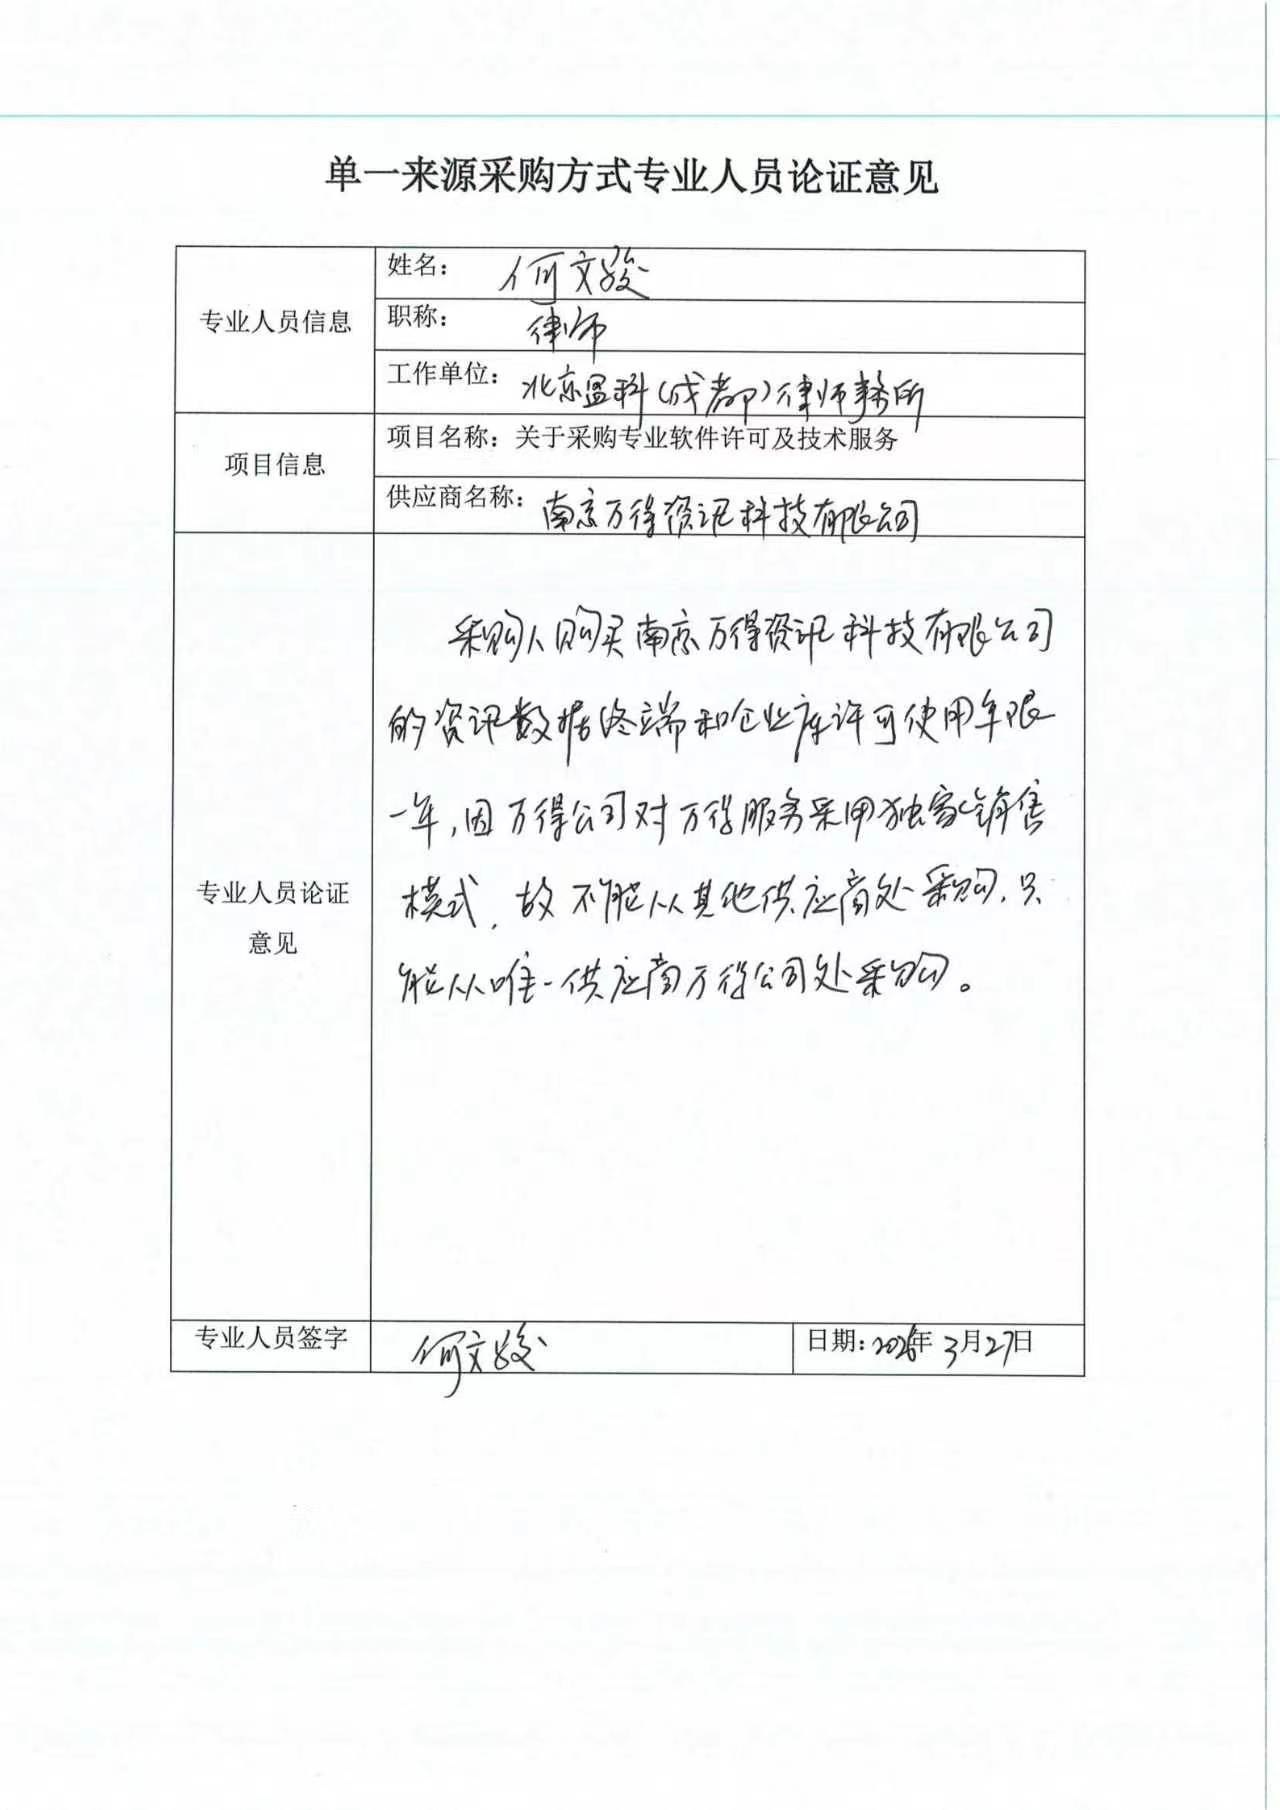 单一来源采购方式专业人员论证意见
专业人员信息
姓名：何文骏
职称：律师
工作单位：北京盈科(成都)律师事务所
项目信息
项目名称：关于采购专业软件许可及技术服务
供应商名称：南京万得资讯科技有限公司
专业人员论证
意见
采购人购买南京万得资讯科技有限公司
的资讯数据终端和企业库许可使用年限
一年,因万得公司对万得服务采用独家销售
模式,故不能从其他供应商处采购,只
能从唯一供应商万得公司处采购。
专业人员签字
何文骏
日期：2026年3月27日